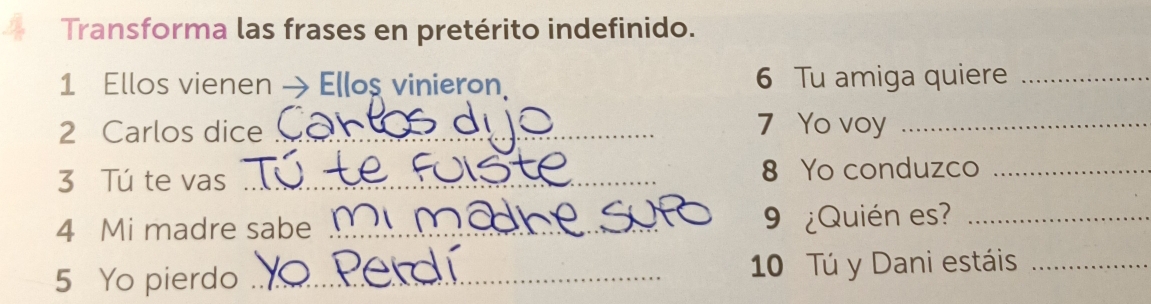 4 Transforma las frases en pretérito indefinido.
1 Ellos vienen → Ellos vinieron.
2 Carlos dice Carlos dijo
3 Tú te vas Tú te fuiste
4 Mi madre sabe mi madre supo
5 Yo pierdo Yo Perdí
6 Tu amiga quiere
7 Yo voy
8 Yo conduzco
9 ¿Quién es?
10 Tú y Dani estáis